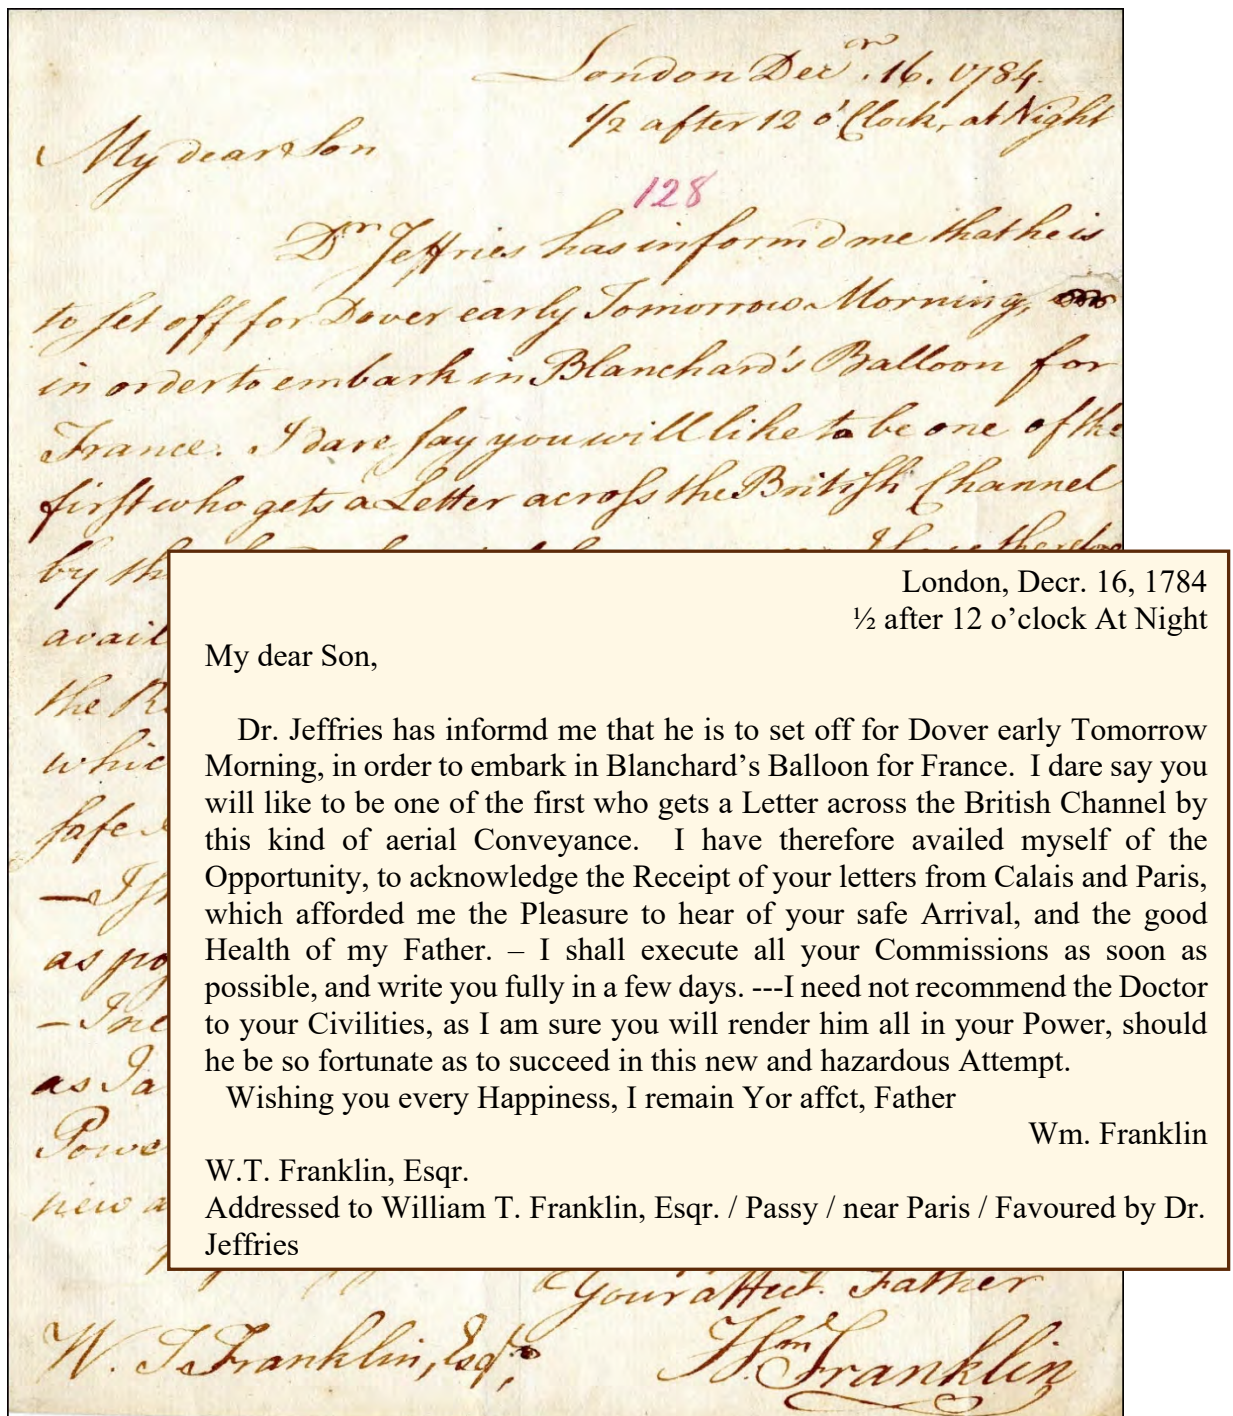 London Decr. 16. 1784.
1/2 after 12 o'Clock, at Night
My dear Son
128
Dr. Jeffries has inform'd me that he is
to set off for Dover early Tomorrow Morning,
in order to embark in Blanchard's Balloon for
France. I dare say you will like to be one of the
first who gets a Letter across the British Channel
by th
avail
the Re
which
safe
— I sh
as po
— I ne
as I a
Powe
new a
London, Decr. 16, 1784
½ after 12 o’clock At Night
My dear Son,
Dr. Jeffries has informd me that he is to set off for Dover early Tomorrow
Morning, in order to embark in Blanchard’s Balloon for France. I dare say you
will like to be one of the first who gets a Letter across the British Channel by
this kind of aerial Conveyance. I have therefore availed myself of the
Opportunity, to acknowledge the Receipt of your letters from Calais and Paris,
which afforded me the Pleasure to hear of your safe Arrival, and the good
Health of my Father. – I shall execute all your Commissions as soon as
possible, and write you fully in a few days. ---I need not recommend the Doctor
to your Civilities, as I am sure you will render him all in your Power, should
he be so fortunate as to succeed in this new and hazardous Attempt.
Wishing you every Happiness, I remain Yor affct, Father
Wm. Franklin
W.T. Franklin, Esqr.
Addressed to William T. Franklin, Esqr. / Passy / near Paris / Favoured by Dr.
Jeffries
Your affect. Father
W. T Franklin, Esqr.
Wm. Franklin